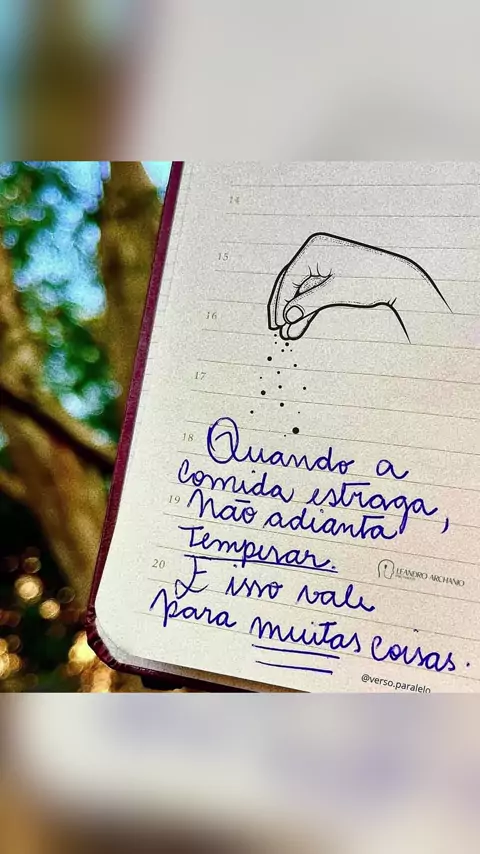 14
15
16
17
18
Quando a
comida estraga,
19
não adianta
temperar.
20
E isso vale
para muitas coisas.
LEANDRO ARCHANJO
@verso.paralelo